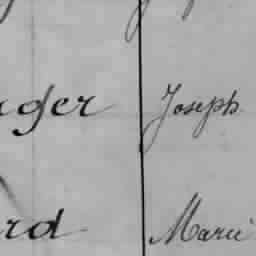 ger Joseph
rd Marie